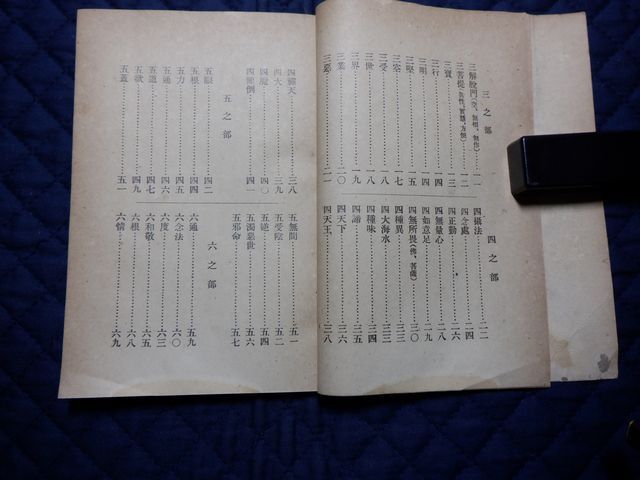 三之部
三解脫門(空、無相、無作)……一一
三菩提……一二
三寶……一三
三行……一四
三明……一四
三堅……一五
三空……一七
三受……一八
三世……一八
三界……一九
三業……二〇
三惡……二一
四之部
四攝法……二二
四念處……二四
四正勤……二六
四無量心……二八
四如意足……二九
四無所畏(佛、菩薩)……三〇
四種異……三三
四大海水……三三
四種味……三四
四諦……三五
四天下……三六
四天王……三八
四禪天……三八
四大……三九
四魔……四〇
四顚倒……四一
五之部
五眼……四二
五根……四四
五力……四五
五通……四六
五道……四七
五欲……四九
五蓋……五一
五無間……五一
五受陰……五二
五逆……五四
五濁惡世……五六
五邪命……五七
六之部
六通……五九
六念法……六〇
六度……六三
六和敬……六五
六根……六八
六情……六九